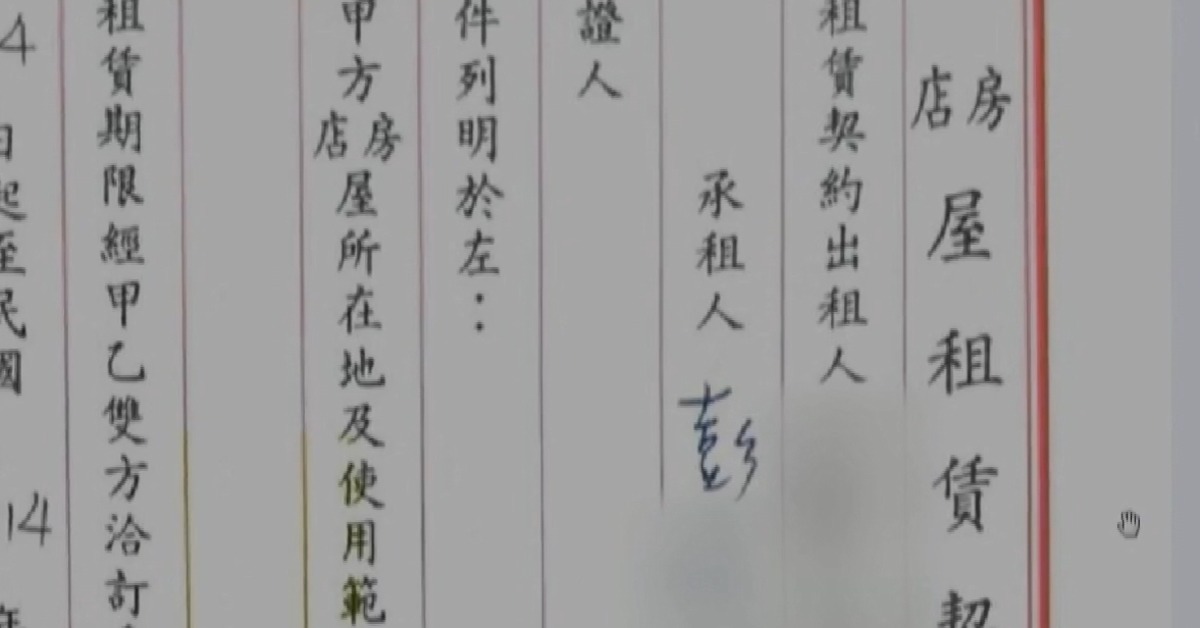 房店屋租賃契
租賃契約出租人
承租人 彭
證人
件列明於左：
甲方房店屋所在地及使用範
租賃期限經甲乙雙方洽訂
4 日起至民國 14 年